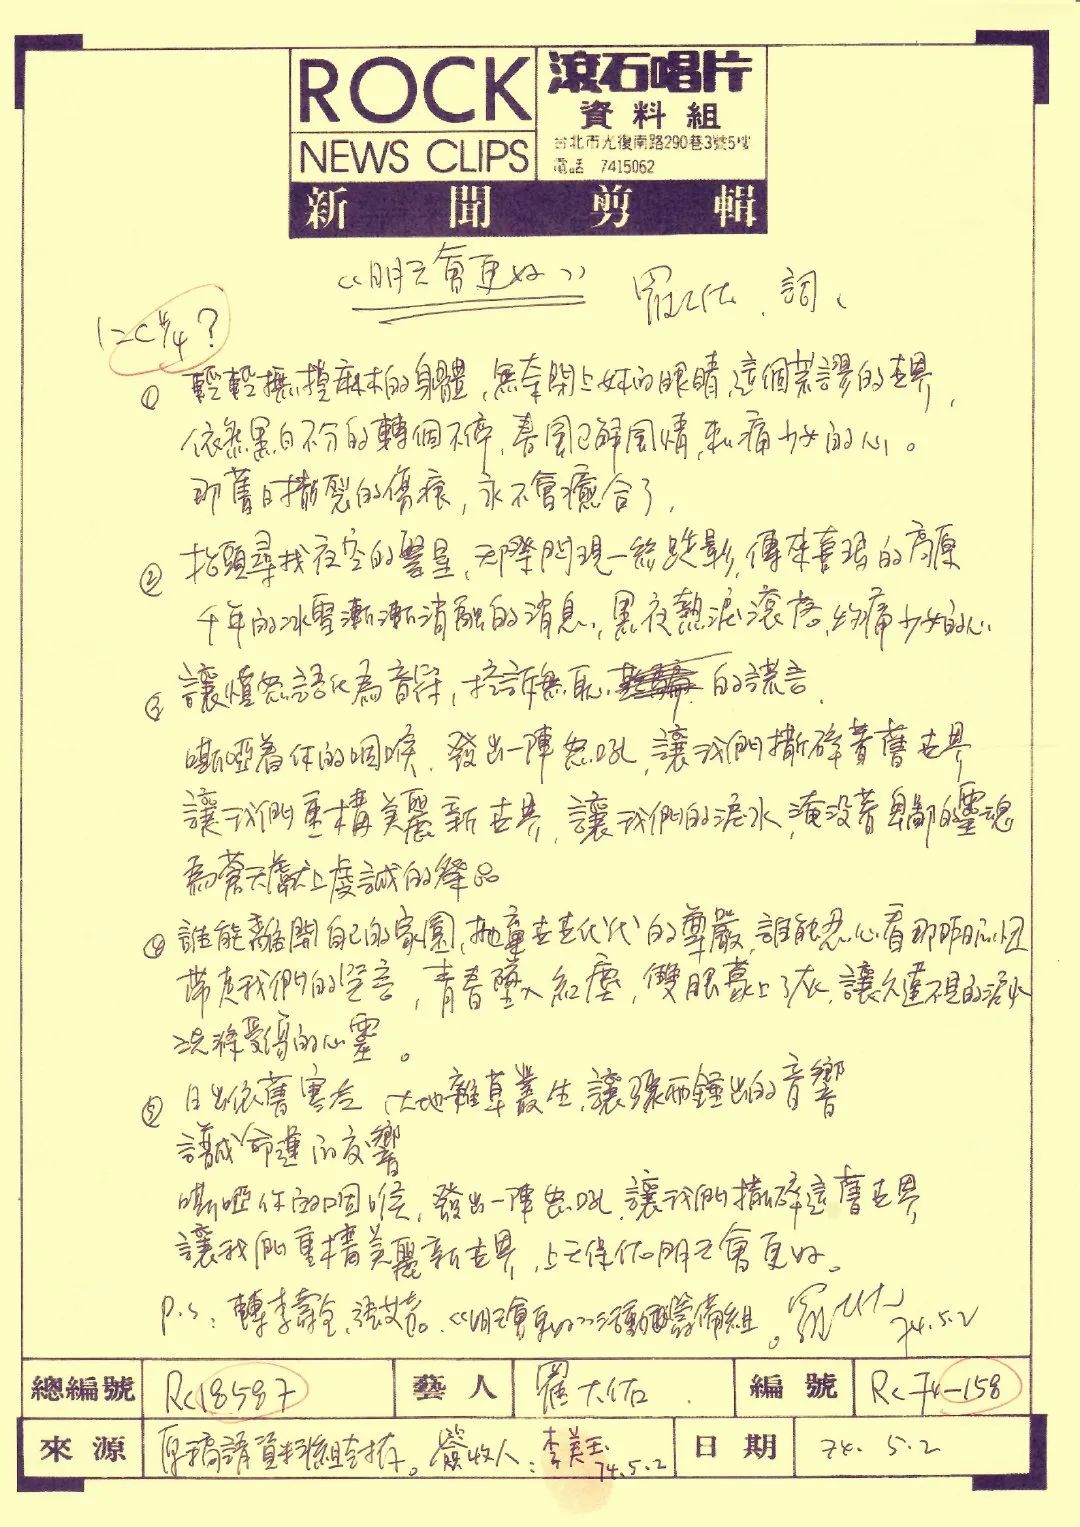 ROCK
NEWS CLIPS
滾石唱片
資料組
台北市光復南路290巷3號5樓
電話 7415062
新聞剪輯
《明天會更好》 羅大佑 詞、
1=C 4/4?
① 輕輕撫摸麻木的身體,無奈閉上妳的眼睛,這個荒謬的世界,
依然黑白不分的轉個不停,春風已解風情,刺痛少女的心。
那舊日撕裂的傷痕,永不會癒合了,
② 抬頭尋找夜空的繁星,天際閃現一絲蹤影,傳來喜訊的高原
千年的冰雪漸漸消融的消息,黑夜熱淚滾落,灼痛少女的心
③ 讓憤怒語化為音符,控訴無恥的謊言,
嘶啞著你的咽喉,發出一陣怒吼,讓我們撕碎著舊世界
讓我們重構美麗新世界,讓我們的淚水,淹没著卑鄙的靈魂
為蒼天獻上虔誠的祭品
④ 誰能離開自己的家園,拋棄世世代代的尊嚴,誰能忍心看那昨日的憂
帶走我們的誓言,青春墮入紅塵,雙眼蒙上了灰,讓久違不見的淚水
洗滌受傷的心靈。
⑤ 日出依舊寒冷 大地雜草叢生,讓 鐘出的音響
譜成命運的交響
嘶啞你的咽喉,發出一陣怒吼,讓我們撕碎這舊世界
讓我們重構美麗新世界,上天保佑明天會更好。
P.S:轉李壽全,張艾嘉。《明天會更好》活動籌備組。羅大佑 74.5.2
總編號 Rc18587 藝人 羅大佑 編號 Rc74-158
來源 原稿請資料組封存。簽收人:李美玉 74.5.2 日期 74.5.2